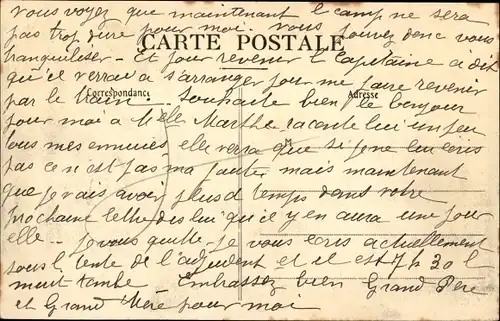 vous voyez que maintenant l camp ne sera
pas trop dure pour moi. vous pouvez donc vous
CARTE POSTALE
tranquiliser - Et pour revenir l Capitaine a dit
qu'il verrai a s'arranger pour me faire revenir
Correspondance
Adresse
par le train. Souhaite bien le bonjour
pour moi a Mlle Marthe raconte lui un peu
tous mes ennuies elle verra que si je ne lui ecris
pas ce n'est pas ma faute mais maintenant
que je vais avoir plus d temps dans votre
prochaine lettre des lui qu'il y en aura une pour
elle - je vous quitte je vous ecris actuellement
sous l tente de l'adjudant et il est 7h30 l
nuit tombe Embrassez bien Grand Père
et Grand Mère pour moi